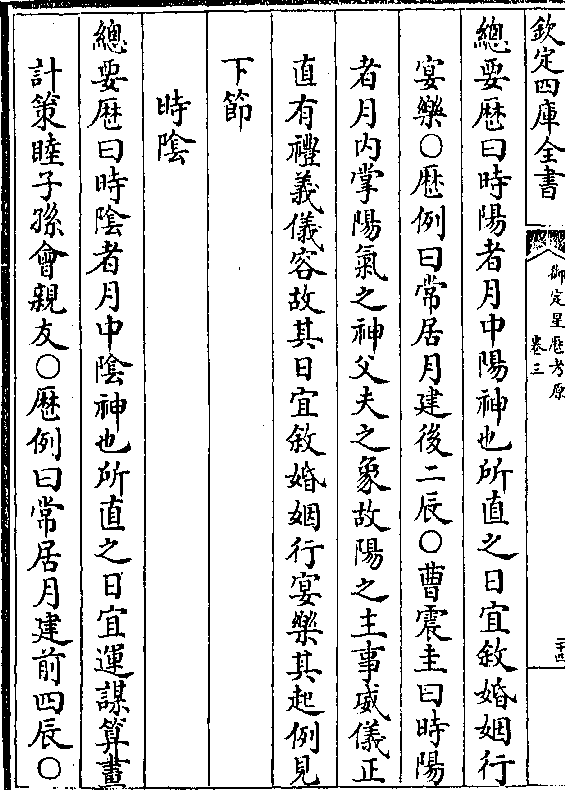 欽定四庫全書
御定星歷考原
卷三
二十四
總要歷曰時陽者月中陽神也所直之日宜敘婚姻行
宴樂○歷例曰常居月建後二辰○曹震圭曰時陽
者月内掌陽氣之神父夫之象故陽之主事威儀正
直有禮義儀容故其日宜敘婚姻行宴樂其起例見
下節
時陰
總要歷曰時陰者月中陰神也所直之日宜運謀算畫
計策睦子孫會親友○歷例曰常居月建前四辰○